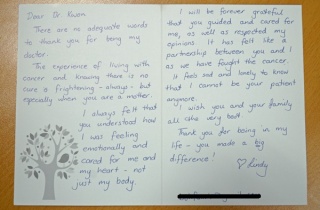 Dear Dr. Kwon
There are no adequate words
to thank you for being my
doctor.
The experience of living with
cancer and knowing there is no
cure is frightening - always - but
especially when you are a mother.
I always felt that
you understood how
I was feeling
emotionally and
cared for me and
my heart - not
just my body.
I will be forever grateful
that you guided and cared for
me, as well as respected my
opinions. It has felt like a
partnership between you and I
as we have fought the cancer.
It feels sad and lonely to know
that I cannot be your patient
anymore.
I wish you and your family
all the very best.
Thank you for being in my
life - you made a big
difference!
♡ Lindy